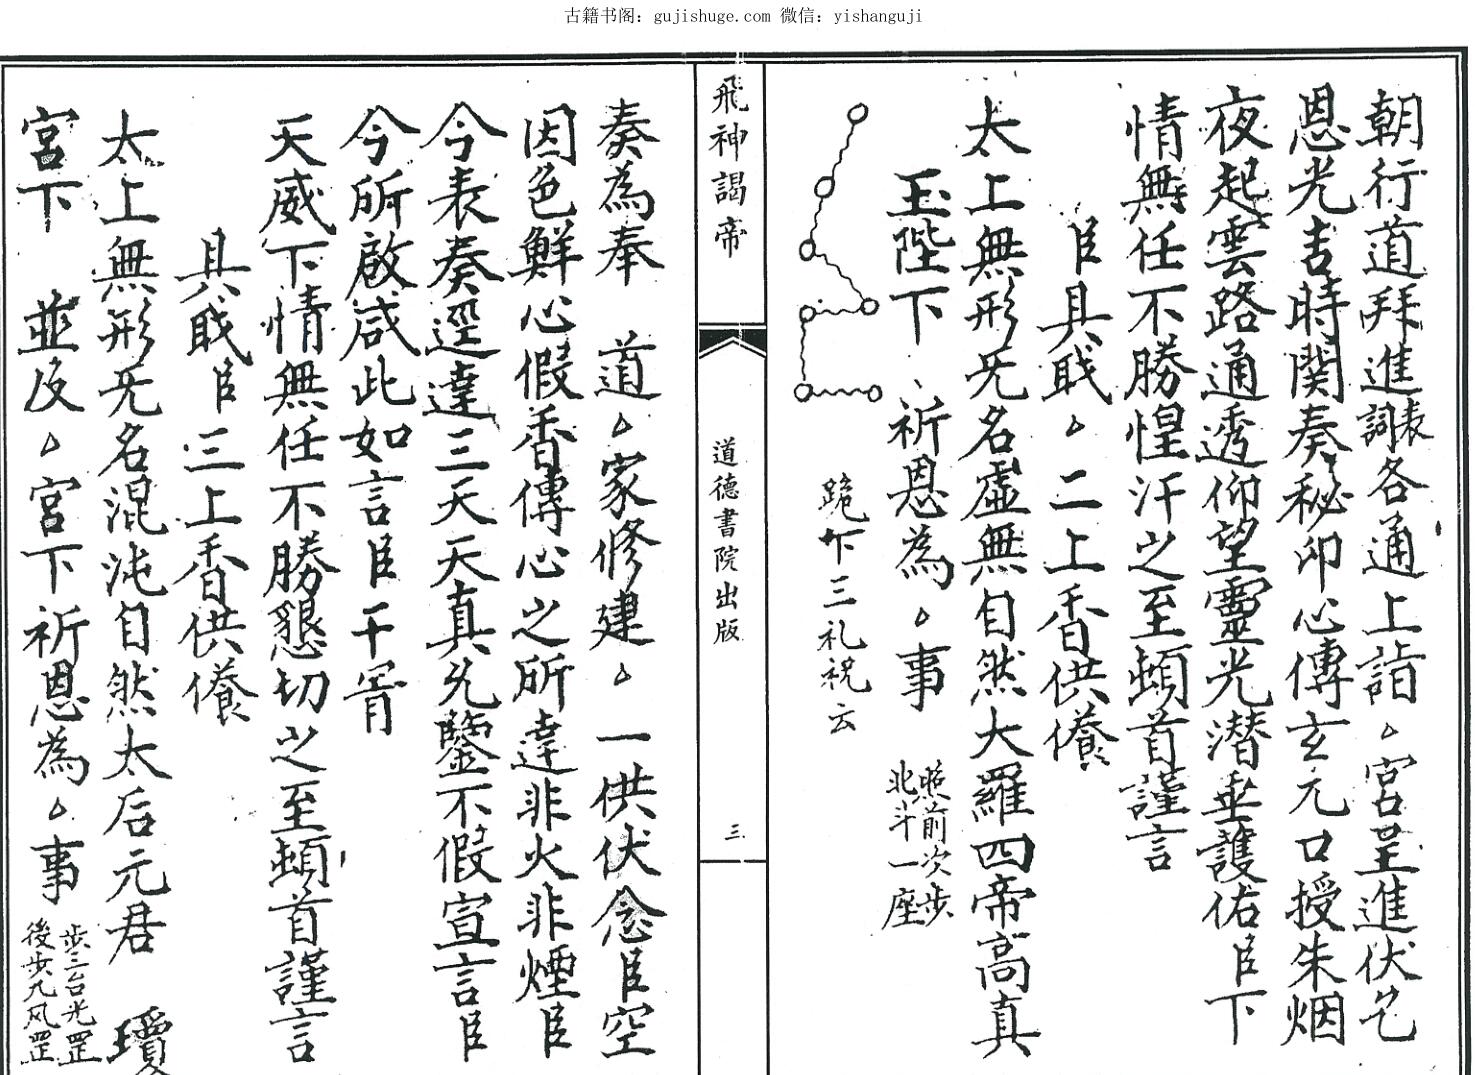 古籍书阁：gujishuge.com 微信：yishanguji
朝行道拜進表詞各通上詣△宮呈進伏乞
恩光吉時関奏秘印心傳玄元口授朱烟
夜起雲路通透仰望靈光潜垂護佑臣下
情無任不勝惶汗之至頓首謹言
臣具職△二上香供養
太上無形无名虛無自然大羅四帝高真
玉陛下祈恩為△事照前次步北斗一座
跪下三礼祝云
飛神謁帝
道德書院出版
三
奏為奉 道△家修建△一供伏念臣空
因色鮮心假香傳心之所達非火非煙臣
今表奏逕達三天天真允鑒不假宣言臣
今所啟咸此如言臣干冐
天威下情無任不勝懇切之至頓首謹言
具職臣三上香供養
太上無形无名混沌自然太后元君 瓊
宮下 並及△宮下祈恩為△事步三台光罡後步九风罡